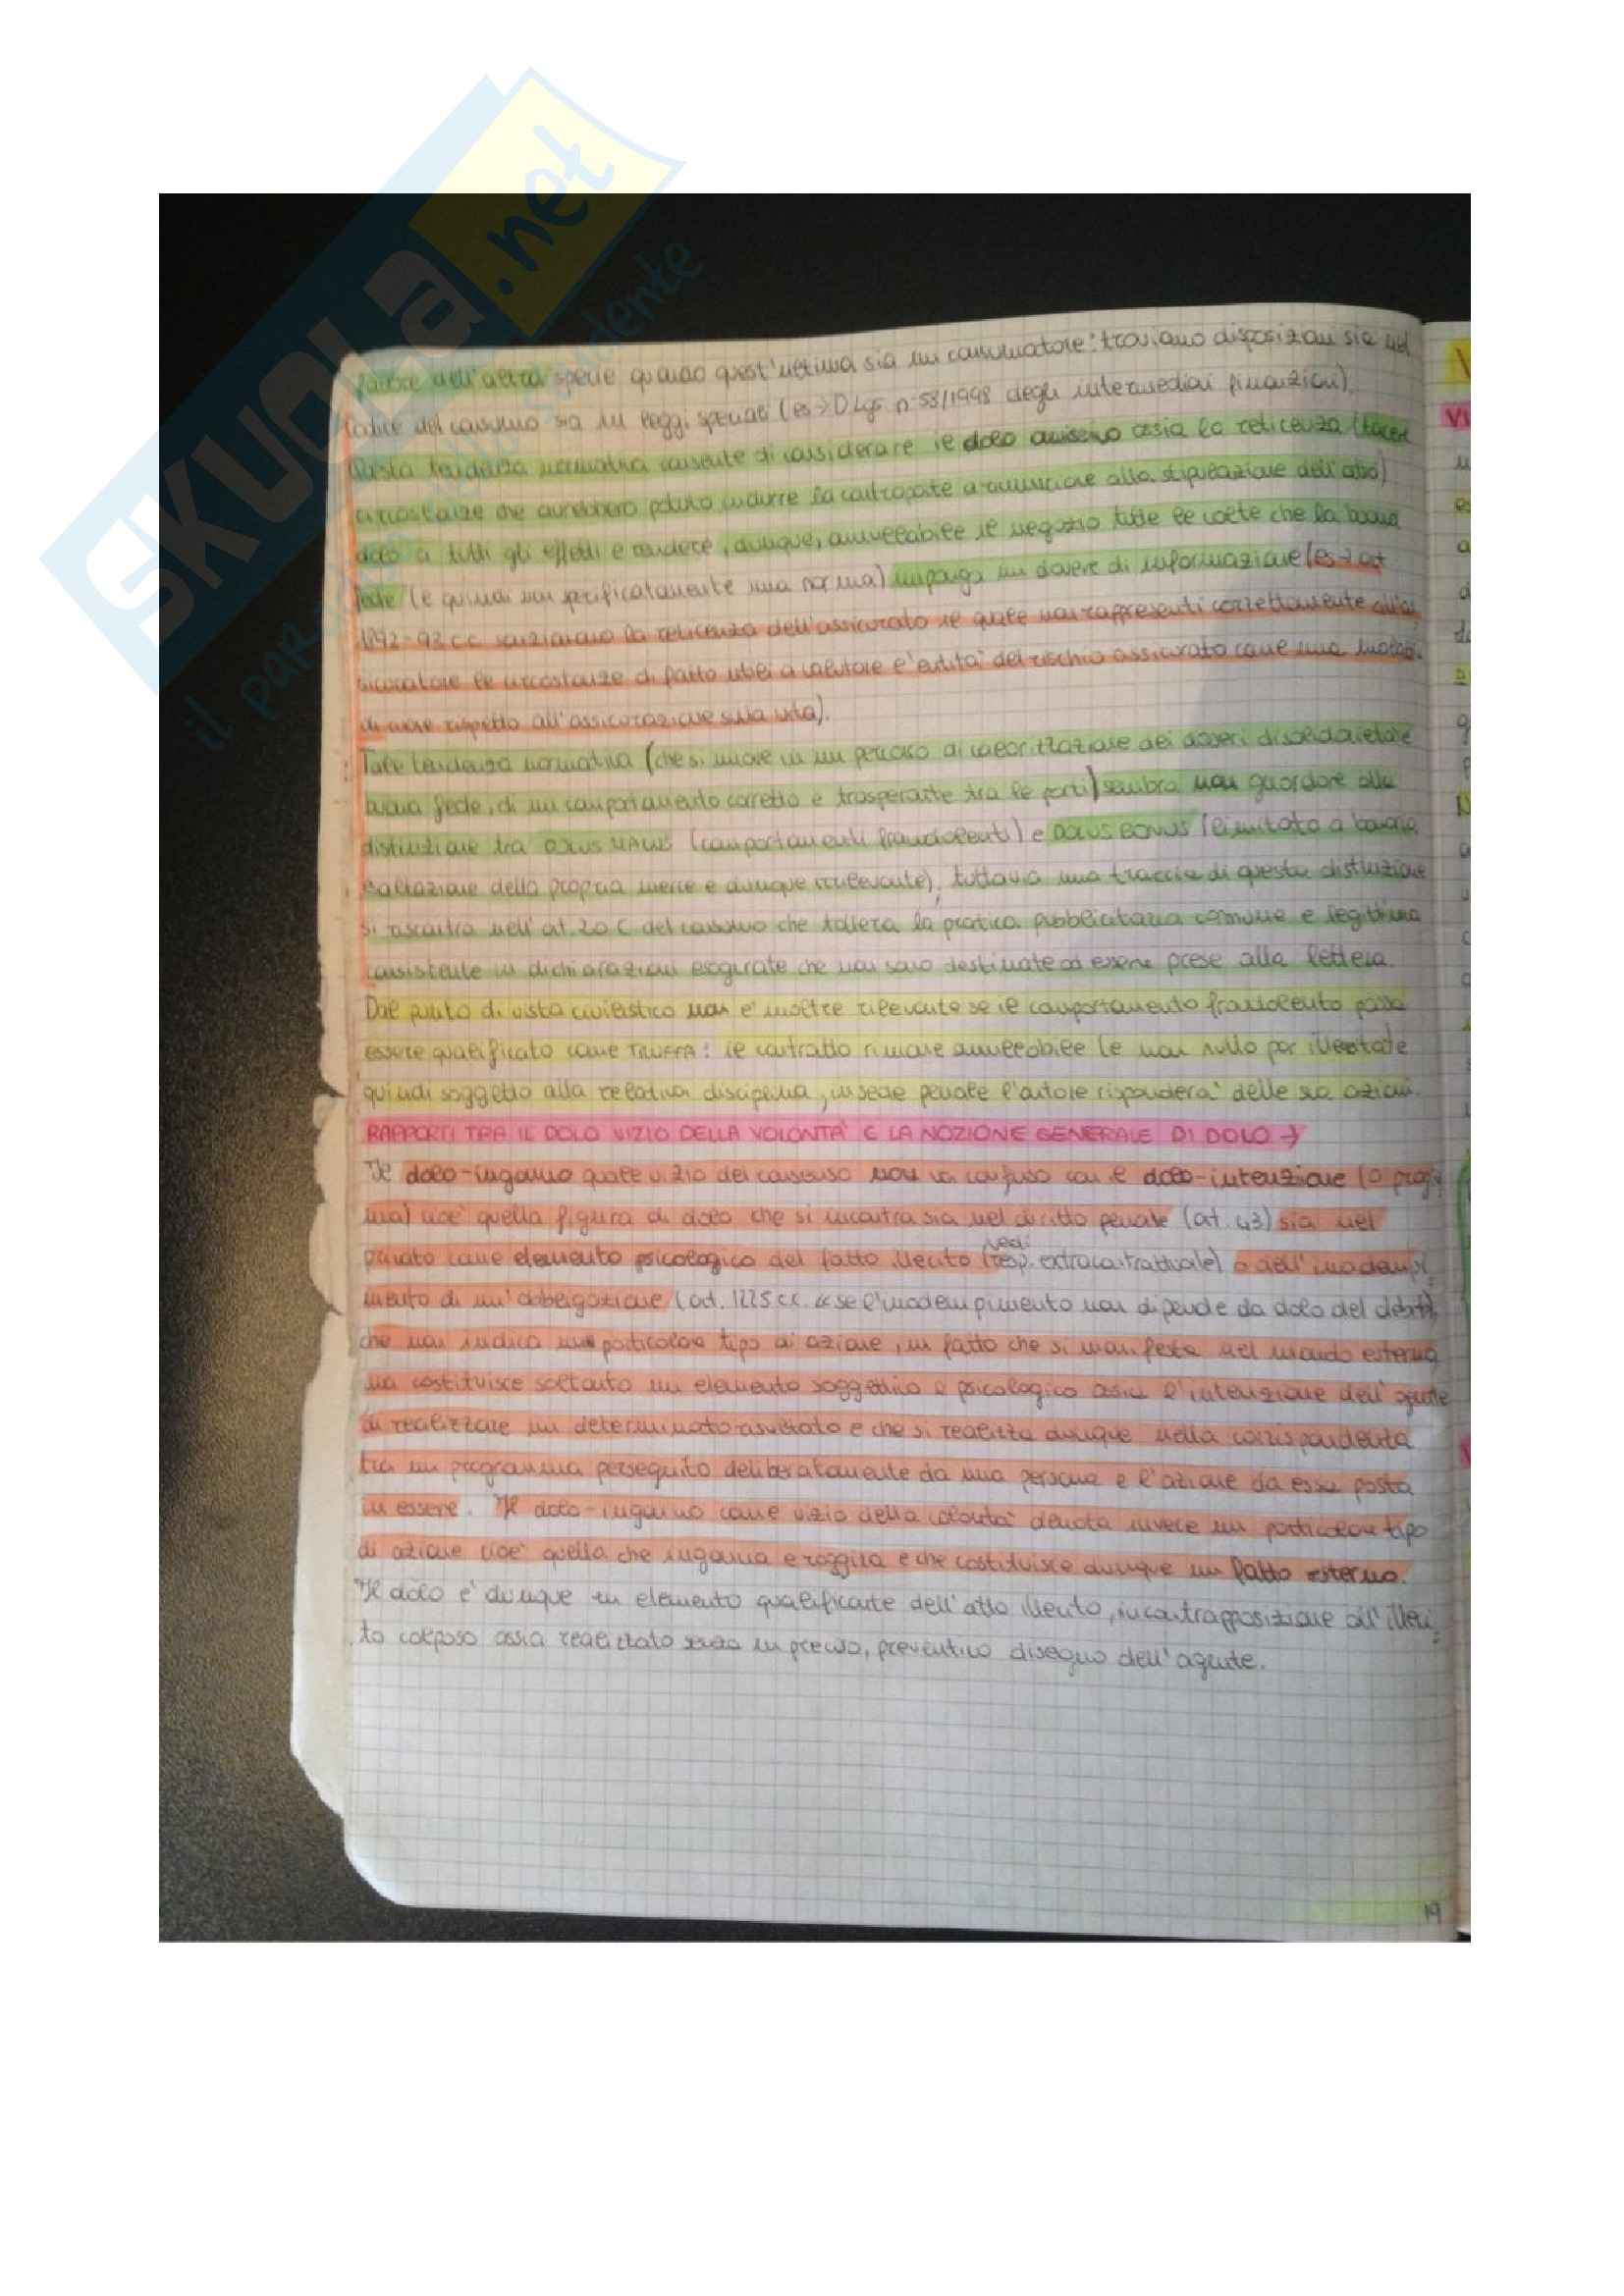 SKUOLA.net
il
favore dell'altra specie quando quest'ultima sia un consumatore: troviamo disposizioni sia nel
Codice del consumo sia in leggi speciali (es → D.Lgs n° 58/1998 degli intermediari finanziari).
Questa tendenza normativa consente di considerare il dolo omissivo ossia la reticenza (tacere
circostanze che avrebbero potuto indurre la controparte a rinunciare alla stipulazione dell'atto)
dolo a tutti gli effetti e rendere, dunque, annullabile il negozio tutte le volte che la buona
fede (e quindi non specificatamente una norma) imponga un dovere di informazione (es → art
1892-93 c.c. sanzionano la reticenza dell'assicurato il quale non rappresenti correttamente all'as
sicuratore le circostanze di fatto utili a valutare l'entità del rischio assicurato come una malattia
di cuore rispetto all'assicurazione sulla vita).
Tale tendenza normativa (che si muove in un percorso di valorizzazione dei doveri di solidarietà e
buona fede, di un comportamento corretto e trasparente tra le parti) sembra non guardare alla
distinzione tra DOLUS MALUS (comportamenti fraudolenti) e DOLUS BONUS (limitato a bonaria
esaltazione della propria merce e dunque irrilevante), tuttavia una traccia di questa distinzione
si riscontra nell'art. 20 C. del consumo che tollera la pratica pubblicitaria comune e legittima
consistente in dichiarazioni esagerate che non sono destinate ad essere prese alla lettera.
Dal punto di vista civilistico non è inoltre rilevante se il comportamento fraudolento possa
essere qualificato come TRUFFA: il contratto rimane annullabile (e non nullo per illiceità) e
quindi soggetto alla relativa disciplina, in sede penale l'autore risponderà delle sue azioni.
RAPPORTI TRA IL DOLO VIZIO DELLA VOLONTÀ E LA NOZIONE GENERALE DI DOLO →
Il dolo-inganno quale vizio del consenso non va confuso con il dolo-intenzione (o program
ma) cioè quella figura di dolo che si incontra sia nel diritto penale (art. 43) sia nel
privato come elemento psicologico del fatto illecito (vedi resp. extracontrattuale) o dell'inadempi
mento di un'obbligazione (art. 1225 c.c. «se l'inadempimento non dipende da dolo del debit)
che non indica un particolare tipo di azione, un fatto che si manifesta nel mondo esterno
ma costituisce soltanto un elemento soggettivo e psicologico ossia l'intenzione dell'agente
di realizzare un determinato risultato e che si realizza dunque nella corrispondenza
tra un programma perseguito deliberatamente da una persona e l'azione da essa posta
in essere. Il dolo-inganno come vizio della volontà denota invece un particolare tipo
di azione cioè quella che inganna e raggira e che costituisce dunque un fatto esterno.
Il dolo è dunque un elemento qualificante dell'atto illecito, in contrapposizione all'illeci
to colposo ossia realizzato senza un preciso, preventivo disegno dell'agente.
19